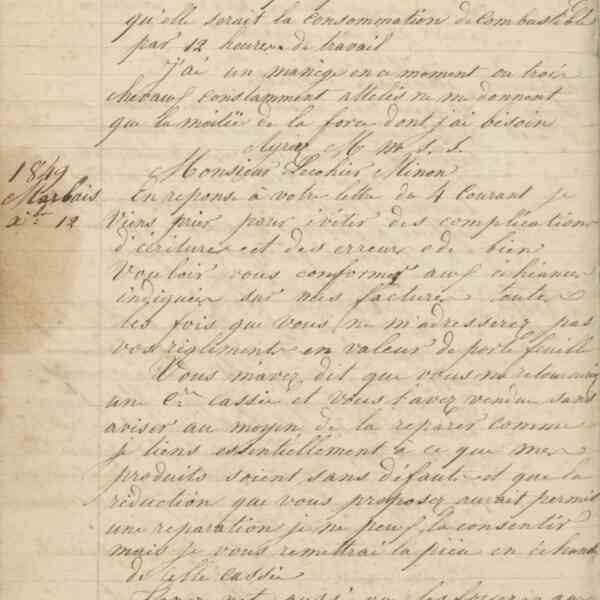 qu'elle serait la consommation de combustible
par 12 heures de travail
J'ai un manège en ce moment ou trois
chevaux constamment attelés ne me donnent
que la moitié de la force dont j'ai besoin
Agréez M m s. s.
1849
Marbais
Xbre 12
Monsieur Lecohier Minon
En reponse à votre lettre du 4 Courant je
viens prier pour éviter des complications
d'écritures et des erreurs de bien
vouloir vous conformer aux échéances
indiquées sur mes factures toutes
les fois que vous ne m'adresserez pas
vos règlements en valeur de porte feuille
Vous mavez dit que vous me
un cassée et vous l'avez vendue sans
aviser au moyen de la réparer comme
je tiens essentiellement à ce que mes
produits soient sans défauts et que la
réduction que vous proposez aurait permis
une reparation je ne peux la consentir
mais je vous remettrai la pièce en échange
de celle cassée